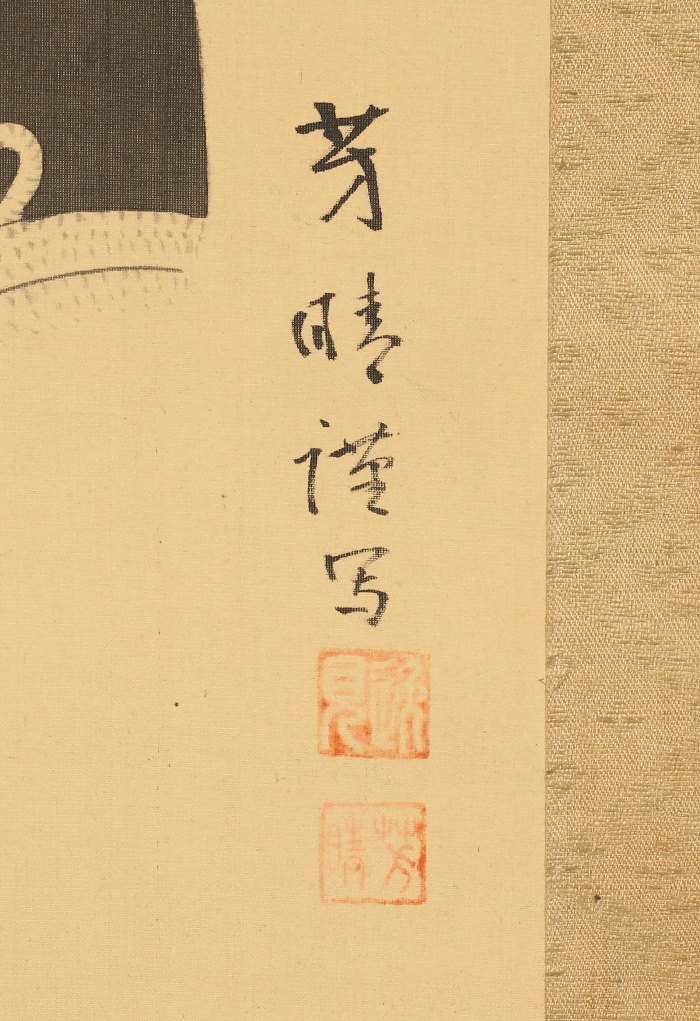 芳晴謹写
芳晴